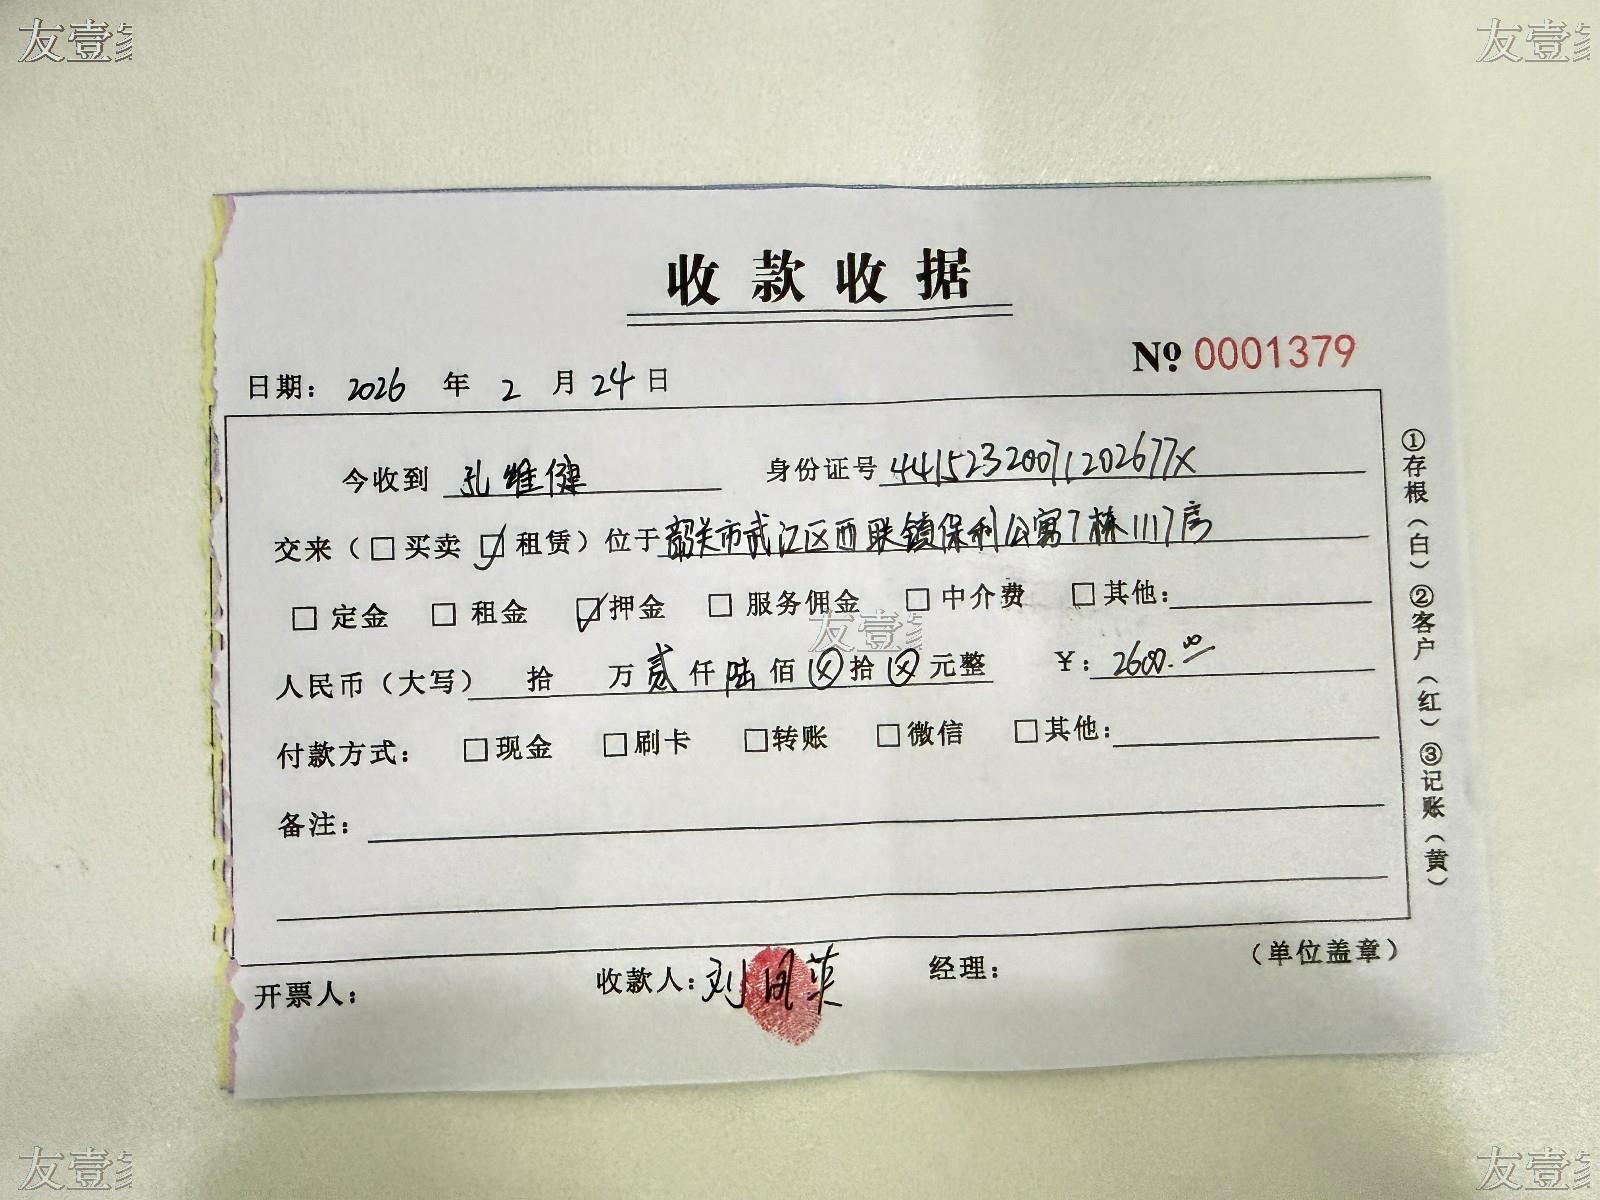 友壹家 友壹家
收款收据
№ 0001379
日期: 2026 年 2 月 24 日
今收到 孔维健 身份证号 44152320071202677X
交来（□买卖 ☑租赁）位于韶关市武江区西联镇保利公寓7栋1117房
□ 定金 □ 租金 ☑押金 □ 服务佣金 □ 中介费 □ 其他:
友壹家
人民币（大写） 拾 万 贰 仟 陆 佰 ⊗ 拾 ⊗ 元整 ¥: 2600.00
付款方式: □现金 □刷卡 □转账 □微信 □其他:
备注:
①存根（白）②客户（红）③记账（黄）
开票人: 收款人:刘凤英 经理: （单位盖章）
友壹家 友壹家